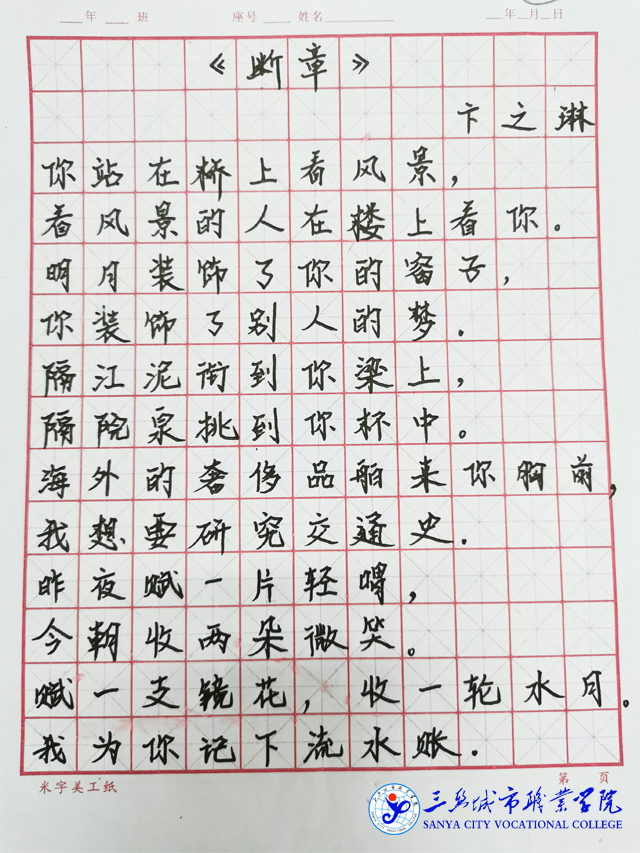 年 班 座号 姓名 年 月 日
《断章》
卞之琳
你站在桥上看风景，
看风景的人在楼上看你。
明月装饰了你的窗子，
你装饰了别人的梦.
隔江泥衔到你梁上，
隔院泉挑到你杯中。
海外的奢侈品舶来你胸前，
我想要研究交通史.
昨夜赋一片轻喟，
今朝收两朵微笑。
赋一支镜花，收一轮水月。
我为你记下流水账.
米字美工纸 第 页
三亞城市職業學院
SANYA CITY VOCATIONAL COLLEGE